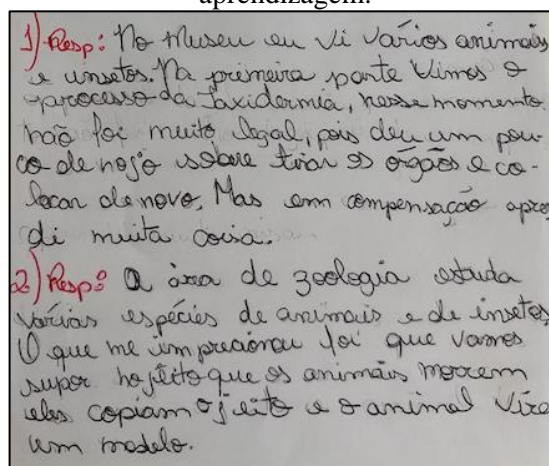 aprendizagem.
1) Resp: No Museu eu vi vários animais
e insetos. Na primeira parte vimos o
processo da Taxidermia, nesse momento
não foi muito legal, pois deu um pou-
co de nojo sobre tirar os orgãos e co-
locar de novo. Mas em compensação apren
di muita coisa.
2) Resp: A área de zoologia estuda
várias espécies de animais e de insetos
O que me impresionou foi que vamos
supor no jeito que os animais morrem
eles copiam o jeito e o animal vira
um modelo.